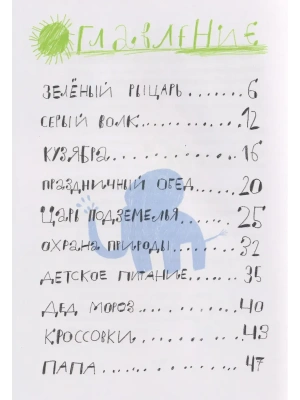 ОГЛАВЛЕНИЕ
ЗЕЛЁНЫЙ РЫЦАРЬ.......6
СЕРЫЙ ВОЛК..........12
КУЗЯБРА............16
ПРАЗДНИЧНЫЙ ОБЕД....20
ЦАРЬ ПОДЗЕМЕЛЬЯ.....25
ОХРАНА ПРИРОДЫ......32
ДЕТСКОЕ ПИТАНИЕ.....35
ДЕД МОРОЗ..........40
КРОССОВКИ..........43
ПАПА..............47